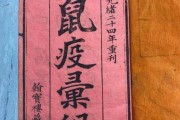 光緒二十四年重刊
鼠疫彙編